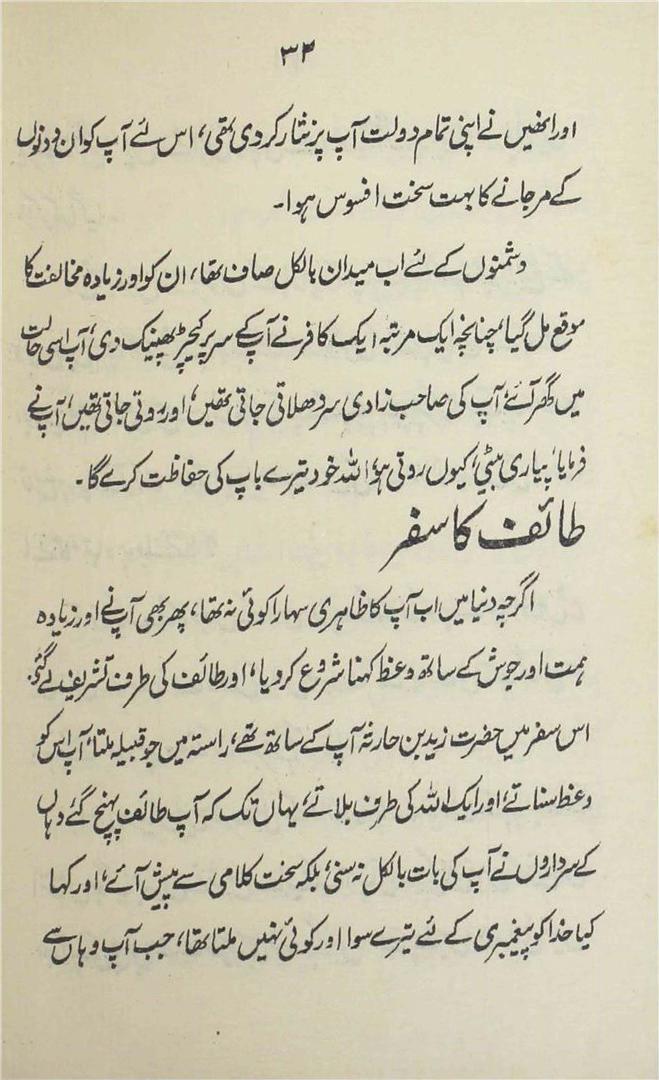 ۳۴
اور انھیں نے اپنی تمام دولت آپ پر نثار کر دی تھی، اس لئے آپ کو ان دونوں
کے مر جانے کا بہت سخت افسوس ہوا۔
دشمنوں کے لئے اب میدان بالکل صاف تھا، ان کو اور زیادہ مخالفت کا
موقع مل گیا، چنانچہ ایک مرتبہ ایک کافر نے آپ کے سر پر کیچڑ پھینک دی، آپ اسی حالت
میں گھر آئے، آپ کی صاحب زادی سر دھلاتی جاتی تھیں، اور روتی جاتی تھیں، آپ نے
فرمایا، پیاری بیٹی، کیوں روتی ہو، اللہ خود تیرے باپ کی حفاظت کرے گا۔
طائف کا سفر
اگرچہ دنیا میں اب آپ کا ظاہری سہارا کوئی نہ تھا، پھر بھی آپ نے اور زیادہ
ہمت اور جوش کے ساتھ وعظ کہنا شروع کر دیا، اور طائف کی طرف تشریف لے گئے،
اس سفر میں حضرت زید بن حارثہ آپ کے ساتھ تھے، راستہ میں جو قبیلہ ملتا، آپ اس کو
وعظ سناتے، اور ایک اللہ کی طرف بلاتے، یہاں تک کہ آپ طائف پہنچ گئے، وہاں
کے سرداروں نے آپ کی بات بالکل نہ سنی، بلکہ سخت کلامی سے پیش آئے، اور کہا
کیا خدا کو پیغمبری کے لئے تیرے سوا اور کوئی نہیں ملتا تھا، جب آپ وہاں سے